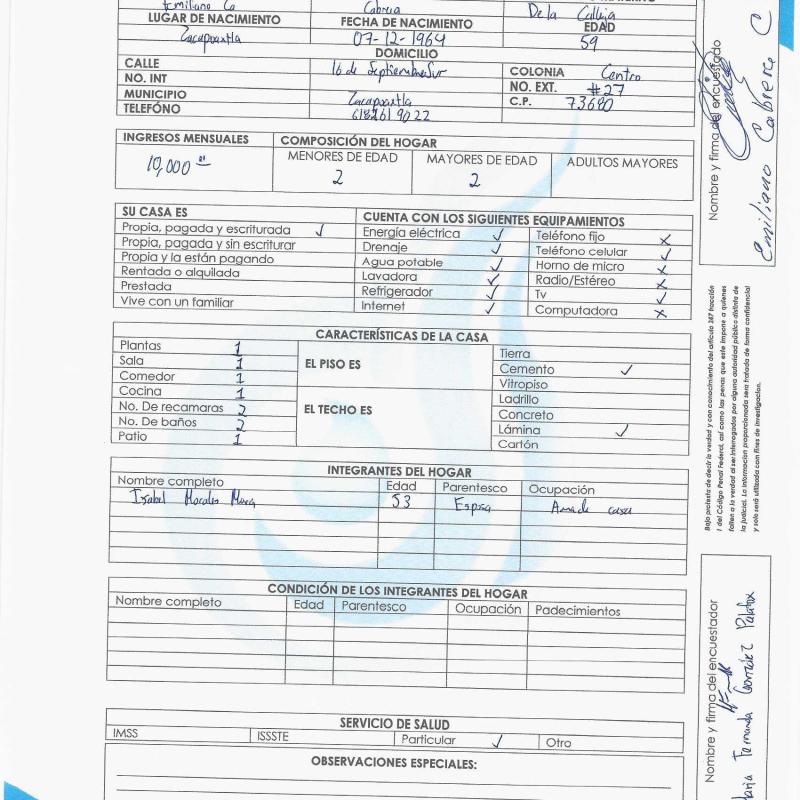 Emiliano Ca Cabrera De la Calleja
LUGAR DE NACIMIENTO FECHA DE NACIMIENTO EDAD
Zacapoaxtla 07-12-1964 59
DOMICILIO
CALLE 16 de Septiembre Sur COLONIA Centro
NO. INT NO. EXT. #27
MUNICIPIO Zacapoaxtla C.P. 73680
TELEFÓNO 6182619022
INGRESOS MENSUALES COMPOSICIÓN DEL HOGAR
10,000 MENORES DE EDAD MAYORES DE EDAD ADULTOS MAYORES
2 2
SU CASA ES CUENTA CON LOS SIGUIENTES EQUIPAMIENTOS
Propia, pagada y escriturada ✓ Energía eléctrica ✓ Teléfono fijo x
Propia, pagada y sin escriturar Drenaje ✓ Teléfono celular ✓
Propia y la están pagando Agua potable ✓ Horno de micro x
Rentada o alquilada Lavadora ✓ Radio/Estéreo x
Prestada Refrigerador ✓ Tv ✓
Vive con un familiar Internet ✓ Computadora x
CARACTERÍSTICAS DE LA CASA
Plantas 1 EL PISO ES Tierra
Sala 1 Cemento ✓
Comedor 1 Vitropiso
Cocina 1 EL TECHO ES Ladrillo
No. De recamaras 2 Concreto
No. De baños 2 Lámina ✓
Patio 1 Cartón
INTEGRANTES DEL HOGAR
Nombre completo Edad Parentesco Ocupación
Isabel Morales 53 Esposa Ama de casa
CONDICIÓN DE LOS INTEGRANTES DEL HOGAR
Nombre completo Edad Parentesco Ocupación Padecimientos
SERVICIO DE SALUD
IMSS ISSSTE Particular ✓ Otro
OBSERVACIONES ESPECIALES:
Nombre y firma del encuestado
Emiliano Cabrera C
Bajo protesta de decir la verdad y con conocimiento del artículo 247 fracción
I del Código Penal Federal, así como las penas que este impone a quienes
falten a la verdad al ser interrogados por alguna autoridad pública distinta de
la judicial. La información proporcionada sera tratada de forma confidencial
y solo será utilizada con fines de investigación.
Nombre y firma del encuestador
María Fernanda González Palafox